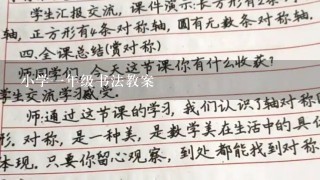 学生汇报交流，课件演示：长方形有2条
轴，正方形有4条对称轴，圆有无数条对称轴.
四.全课总结(赏对称)
今天这节课你有什么收获?
小学一年级书法教案
学生交流学习
师:通过这节课的学习,我们认识了轴对称
形.对称,是一种美,是数学美在生活中的具
体现.只要你留心观察,到处都能找到对称